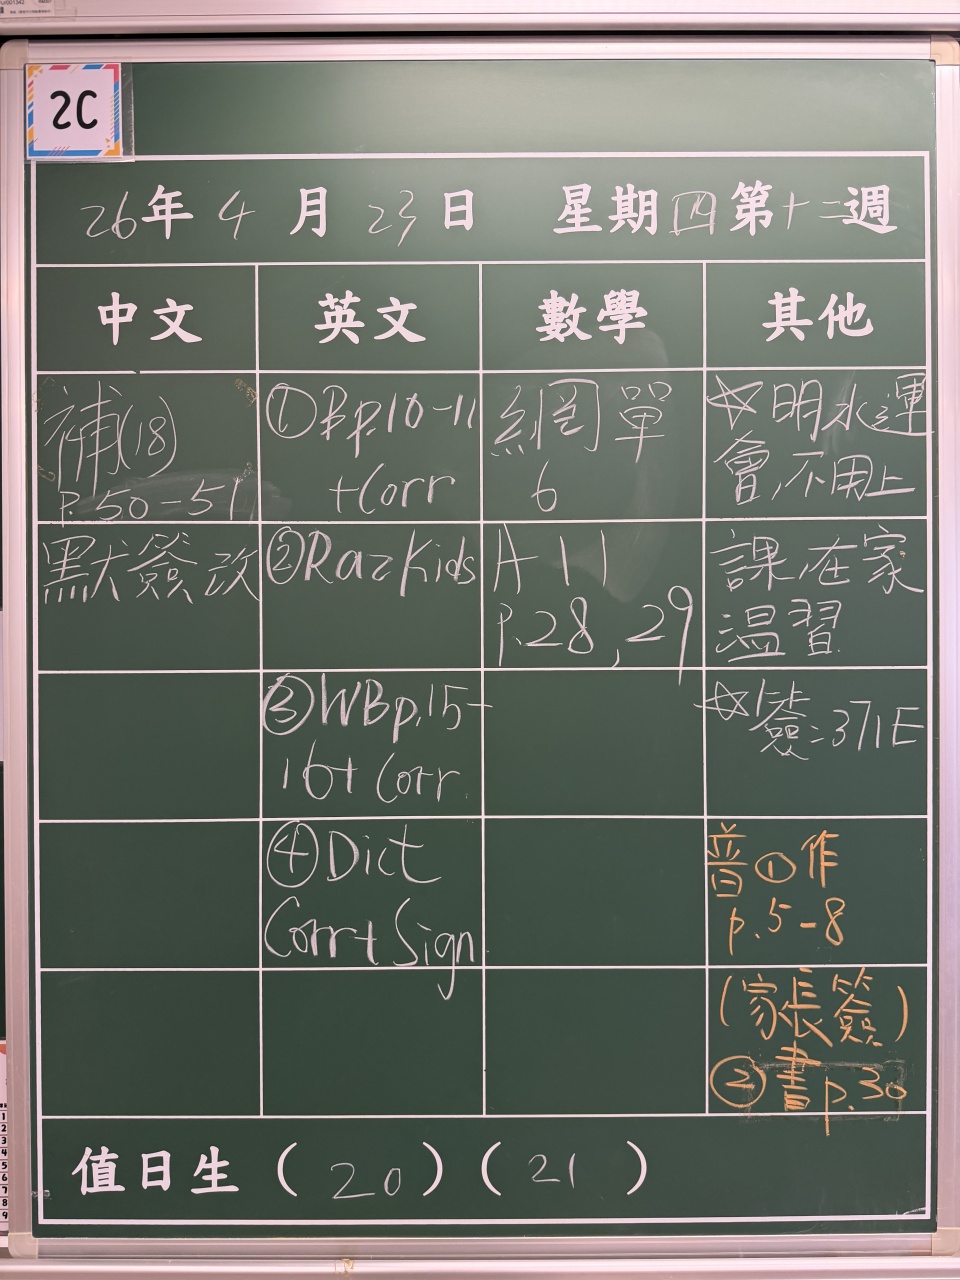 2C
26年4月23日 星期四第十二週
中文
英文
數學
其他
補(18)
p.50-51
默簽改
①Bp.10-11
+Corr
②RazKids
③WBp.15-
16+Corr.
④Dict
Corr+Sign
網單
6
A 11
p.28,29
☆明水運
會,不用上
課,在家
溫習
☆簽:371E
普①作
p.5-8
(家長簽)
②書p.30
值日生(20)(21)